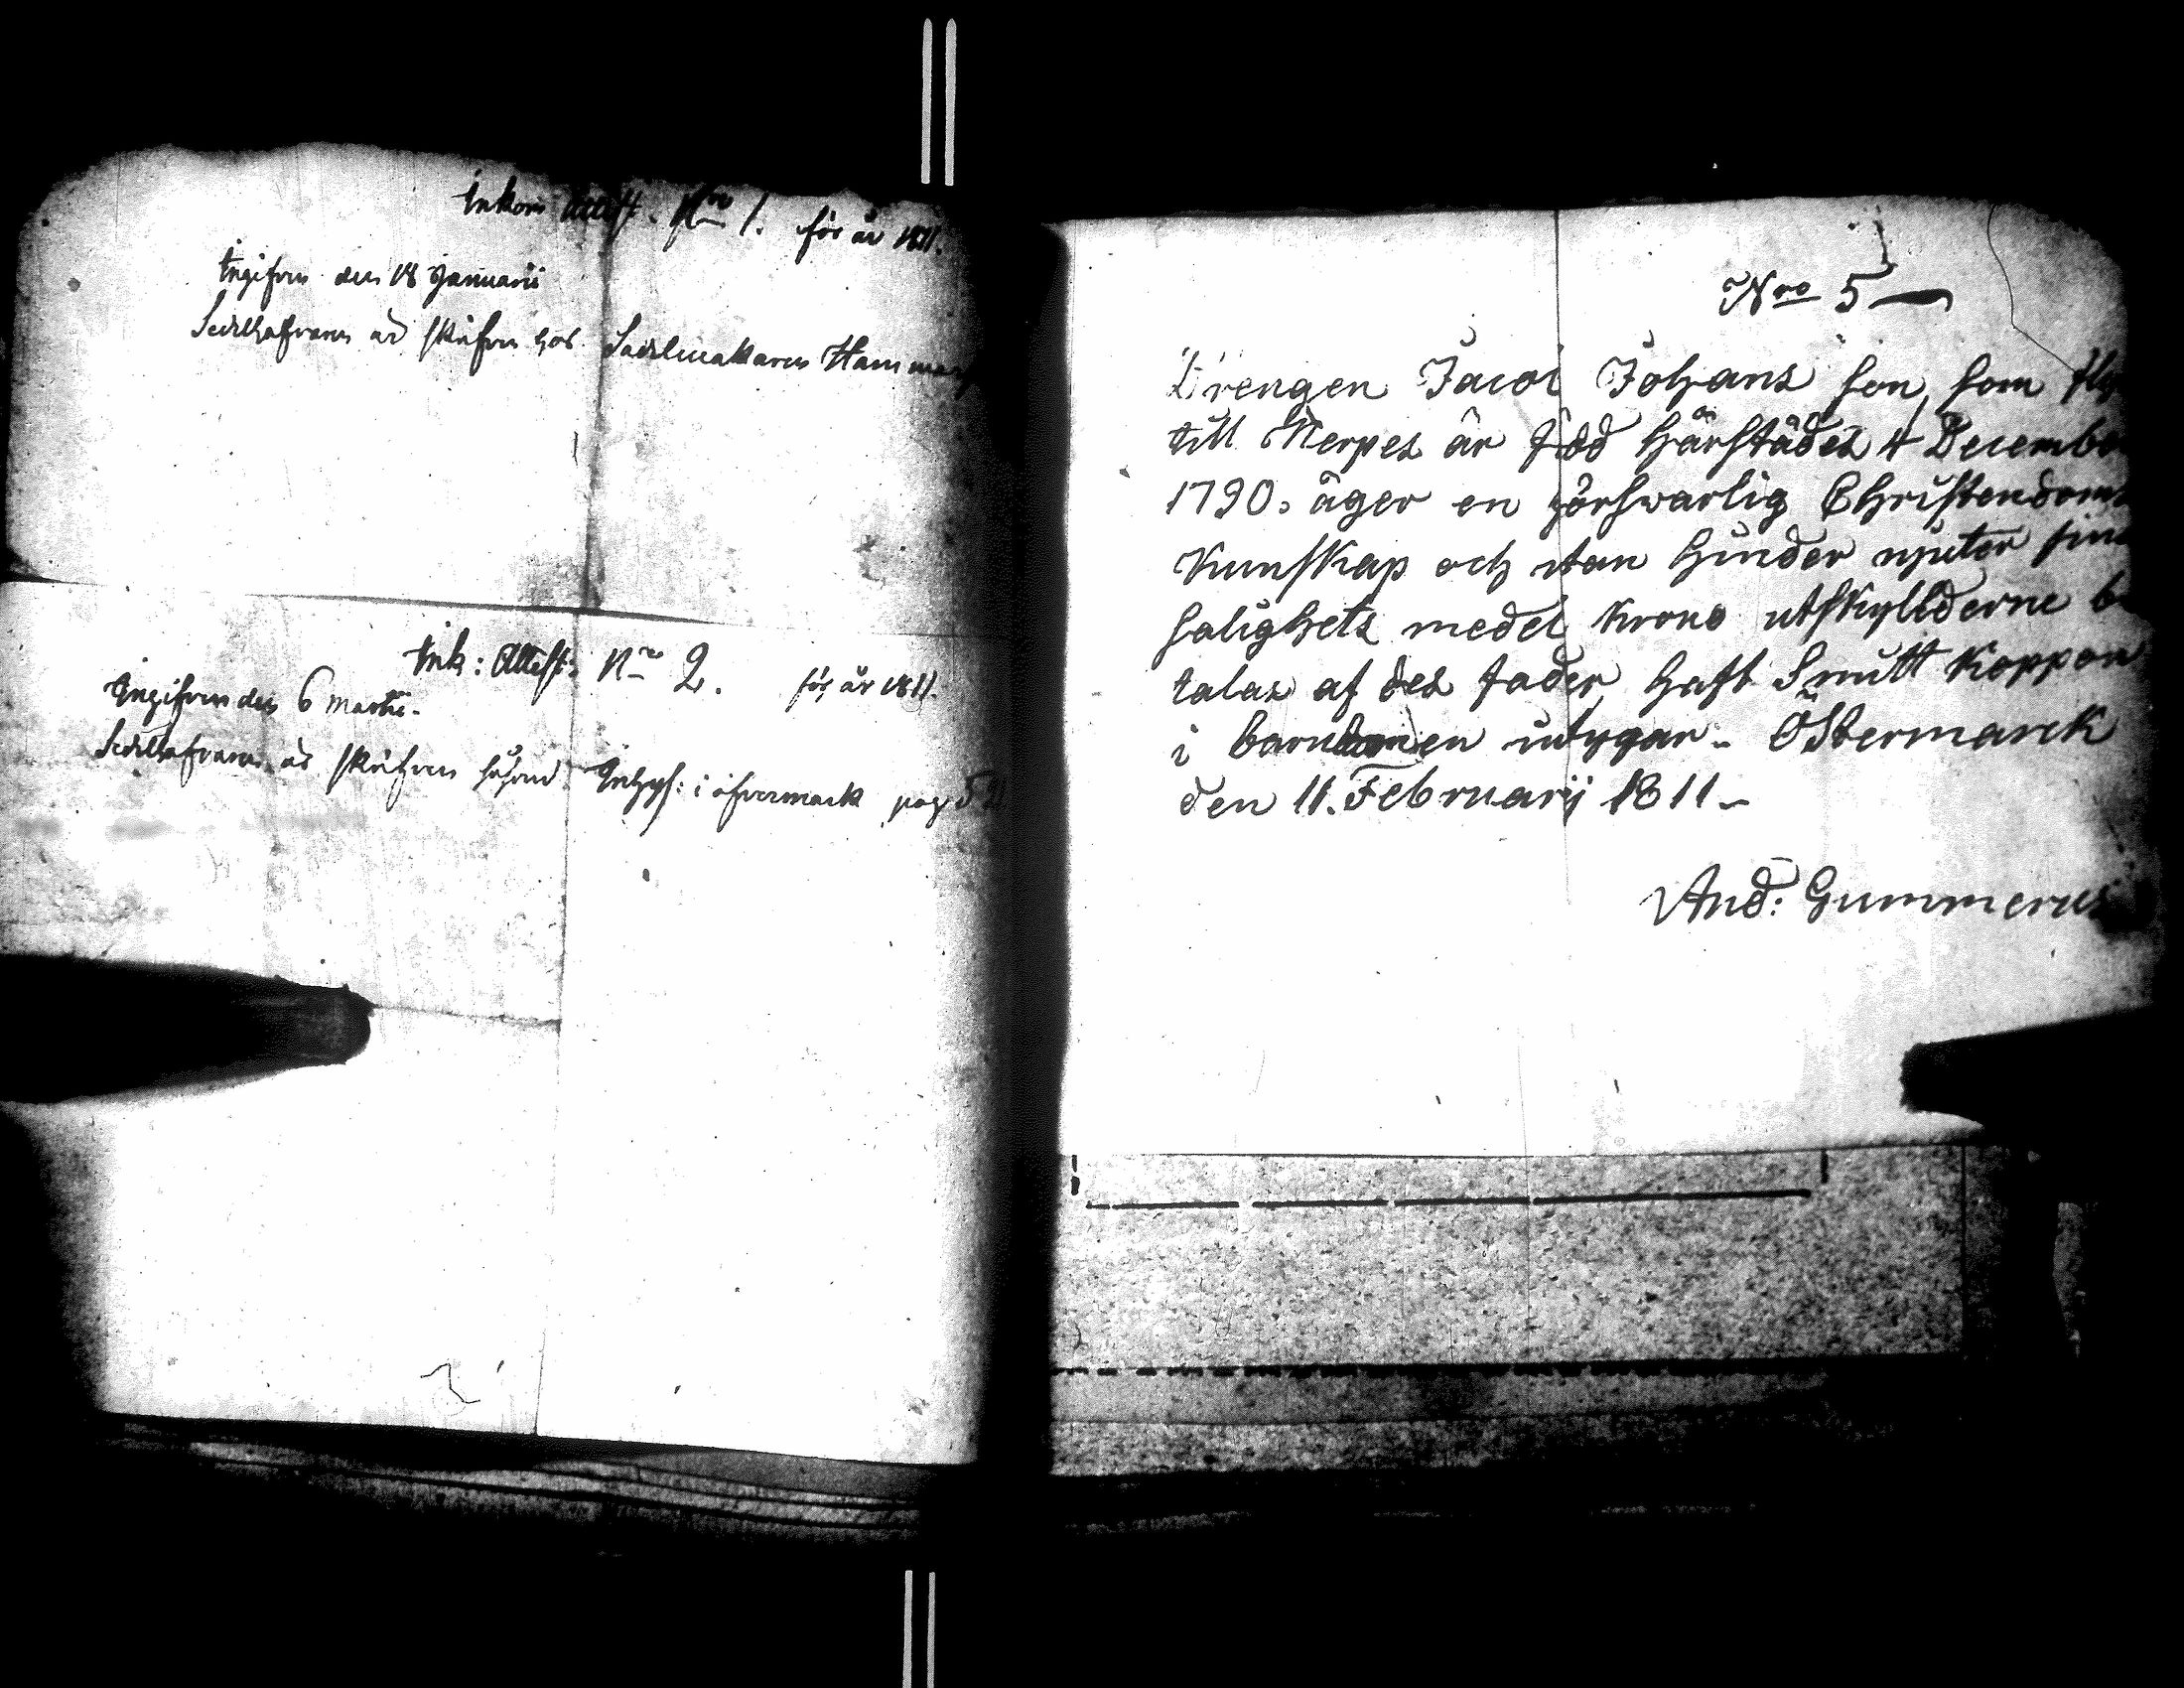 Inkom Attest. Nro 1. för år 1811.
Ingifven den 18 Januarii
Sedelhafvaren är skrifven hos Sadelmakaren Hammar
Ink: Attest: Nro 2. för år 1811.
Ingifven den 6 Martii.
Sedelhafvaren är skrifven såsom Inhys: i öfvermark pag 5
Nro 5
Drengen Jacob Johans son, som fly
till Nerpes är född härstädes 4 Decembe
1790. äger en försvarlig Christendoms
Kunskap och utan hinder njuter sina
salighets medel Krono utskylderne be
talas af des fader, haft Smitt Koppon
i barndomen intygar. Östermarck
den 11. Februarij 1811
And: Gummerus